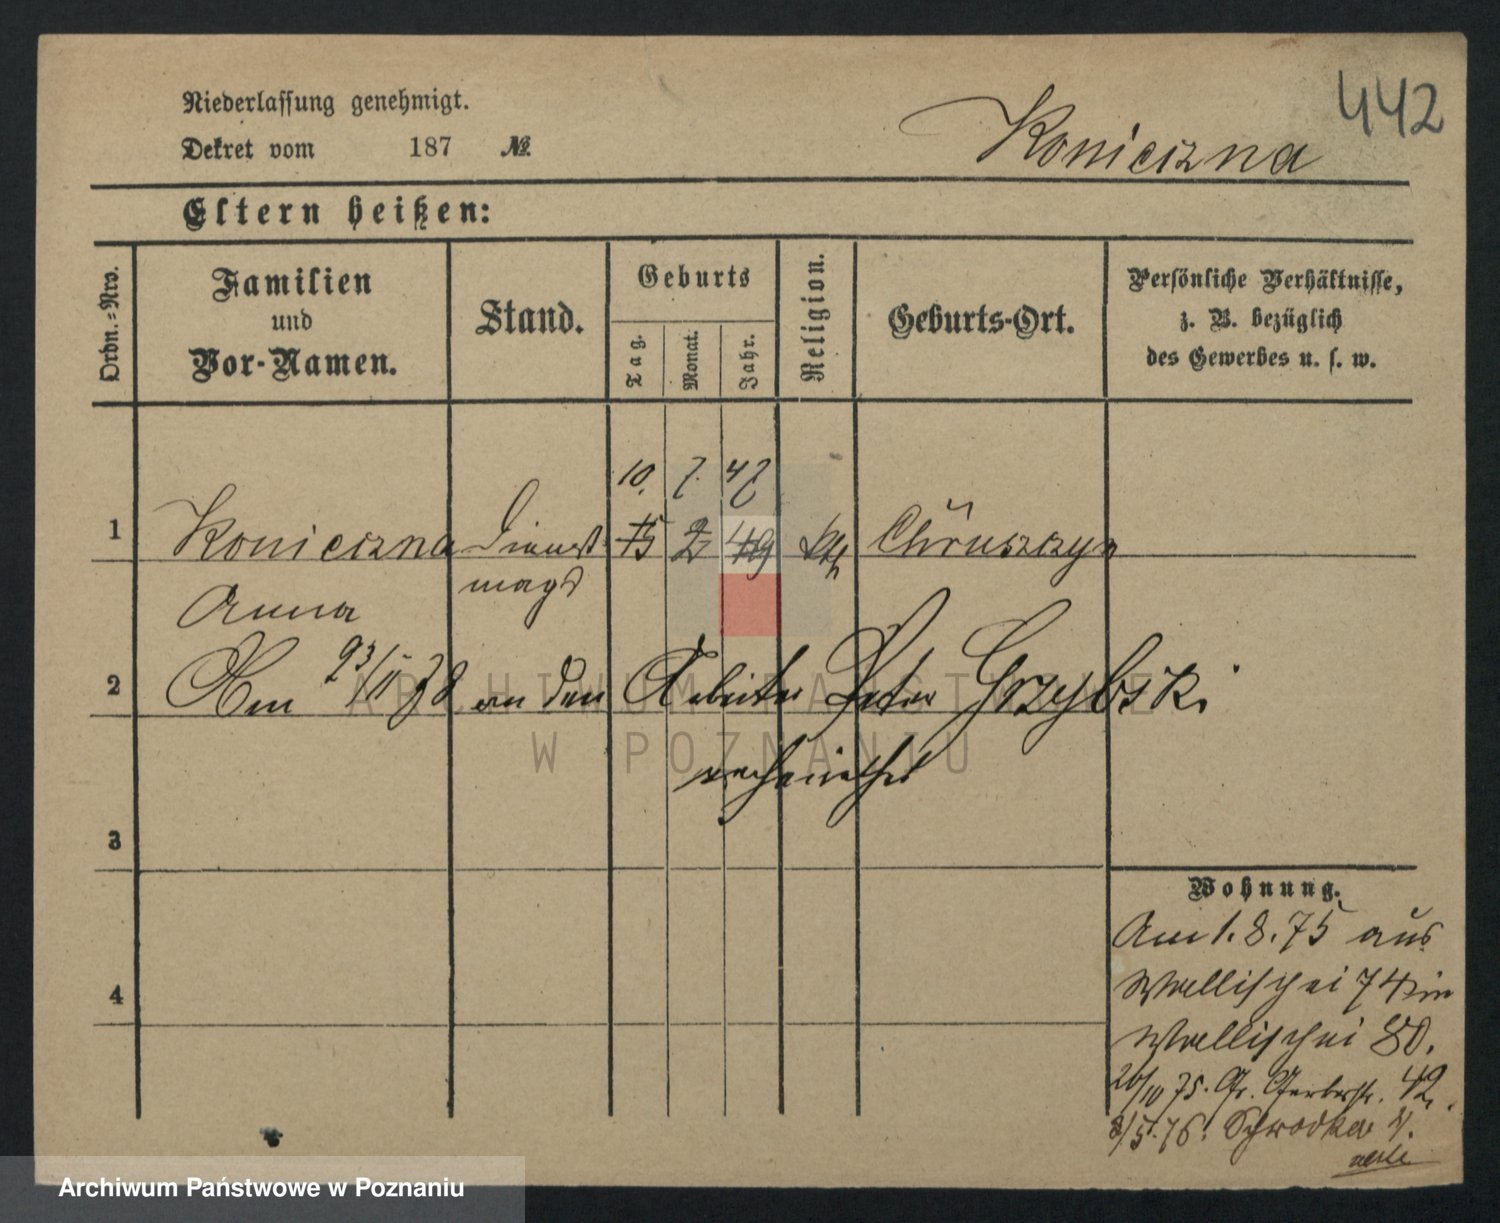 442
Niederlassung genehmigt.
Dekret vom 187 №
Konieczna
Eltern heißen:
Ordn.-Nro.
Familien
und
Vor-Namen.
Stand.
Geburts
Tag.
Monat.
Jahr.
Religion.
Geburts-Ort.
Persönliche Verhältnisse,
z. B. bezüglich
des Gewerbes u. s. w.
10. 7. 47
1 Konieczna Dienst 15 2 49 kth
magd
Anna
2 Am 93/11 an den Arbeiter Peter Grzybski
verheirathet
3
4
Wohnung.
Am 1. 8. 75 aus
Wallischei 74 in
Wallischei 80.
26/10 75. Gr. Gerberstr. 42.
3/5. 76. Schrodka 4.
ARCHIWUM PAŃSTWOWE
W POZNANIU
Archiwum Państwowe w Poznaniu